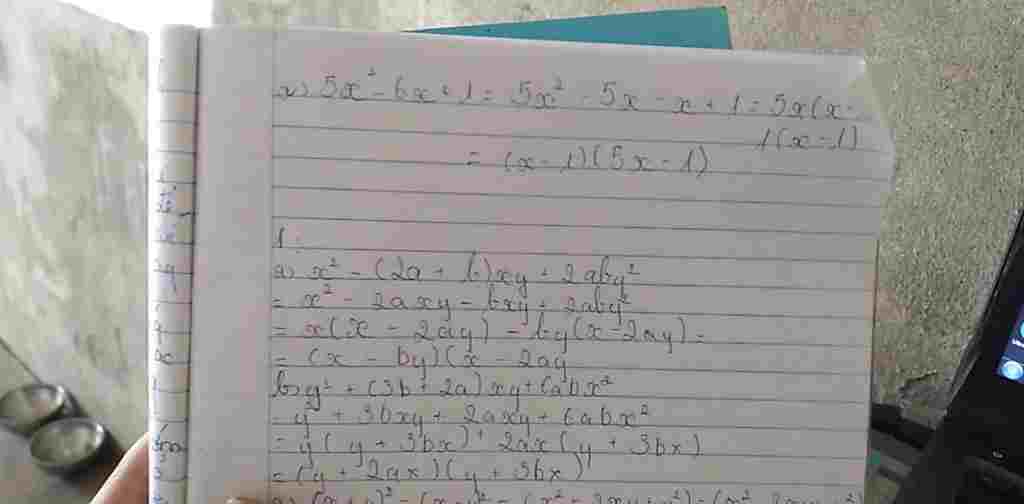 x) 5x² - 6x + 1 = 5x² - 5x - x + 1 = 5x(x -
1(x - 1)
= (x - 1)(5x - 1)
1.
a) x² - (2a + b)xy + 2aby²
= x² - 2axy - bxy + 2aby²
= x(x - 2ay) - by(x - 2ay) =
= (x - by)(x - 2ay
b) y² + (3b + 2a)xy + 6abx²
y² + 3bxy + 2axy + 6abx²
= y(y + 3bx) + 2ax(y + 3bx)
= (y + 2ax)(y + 3bx)